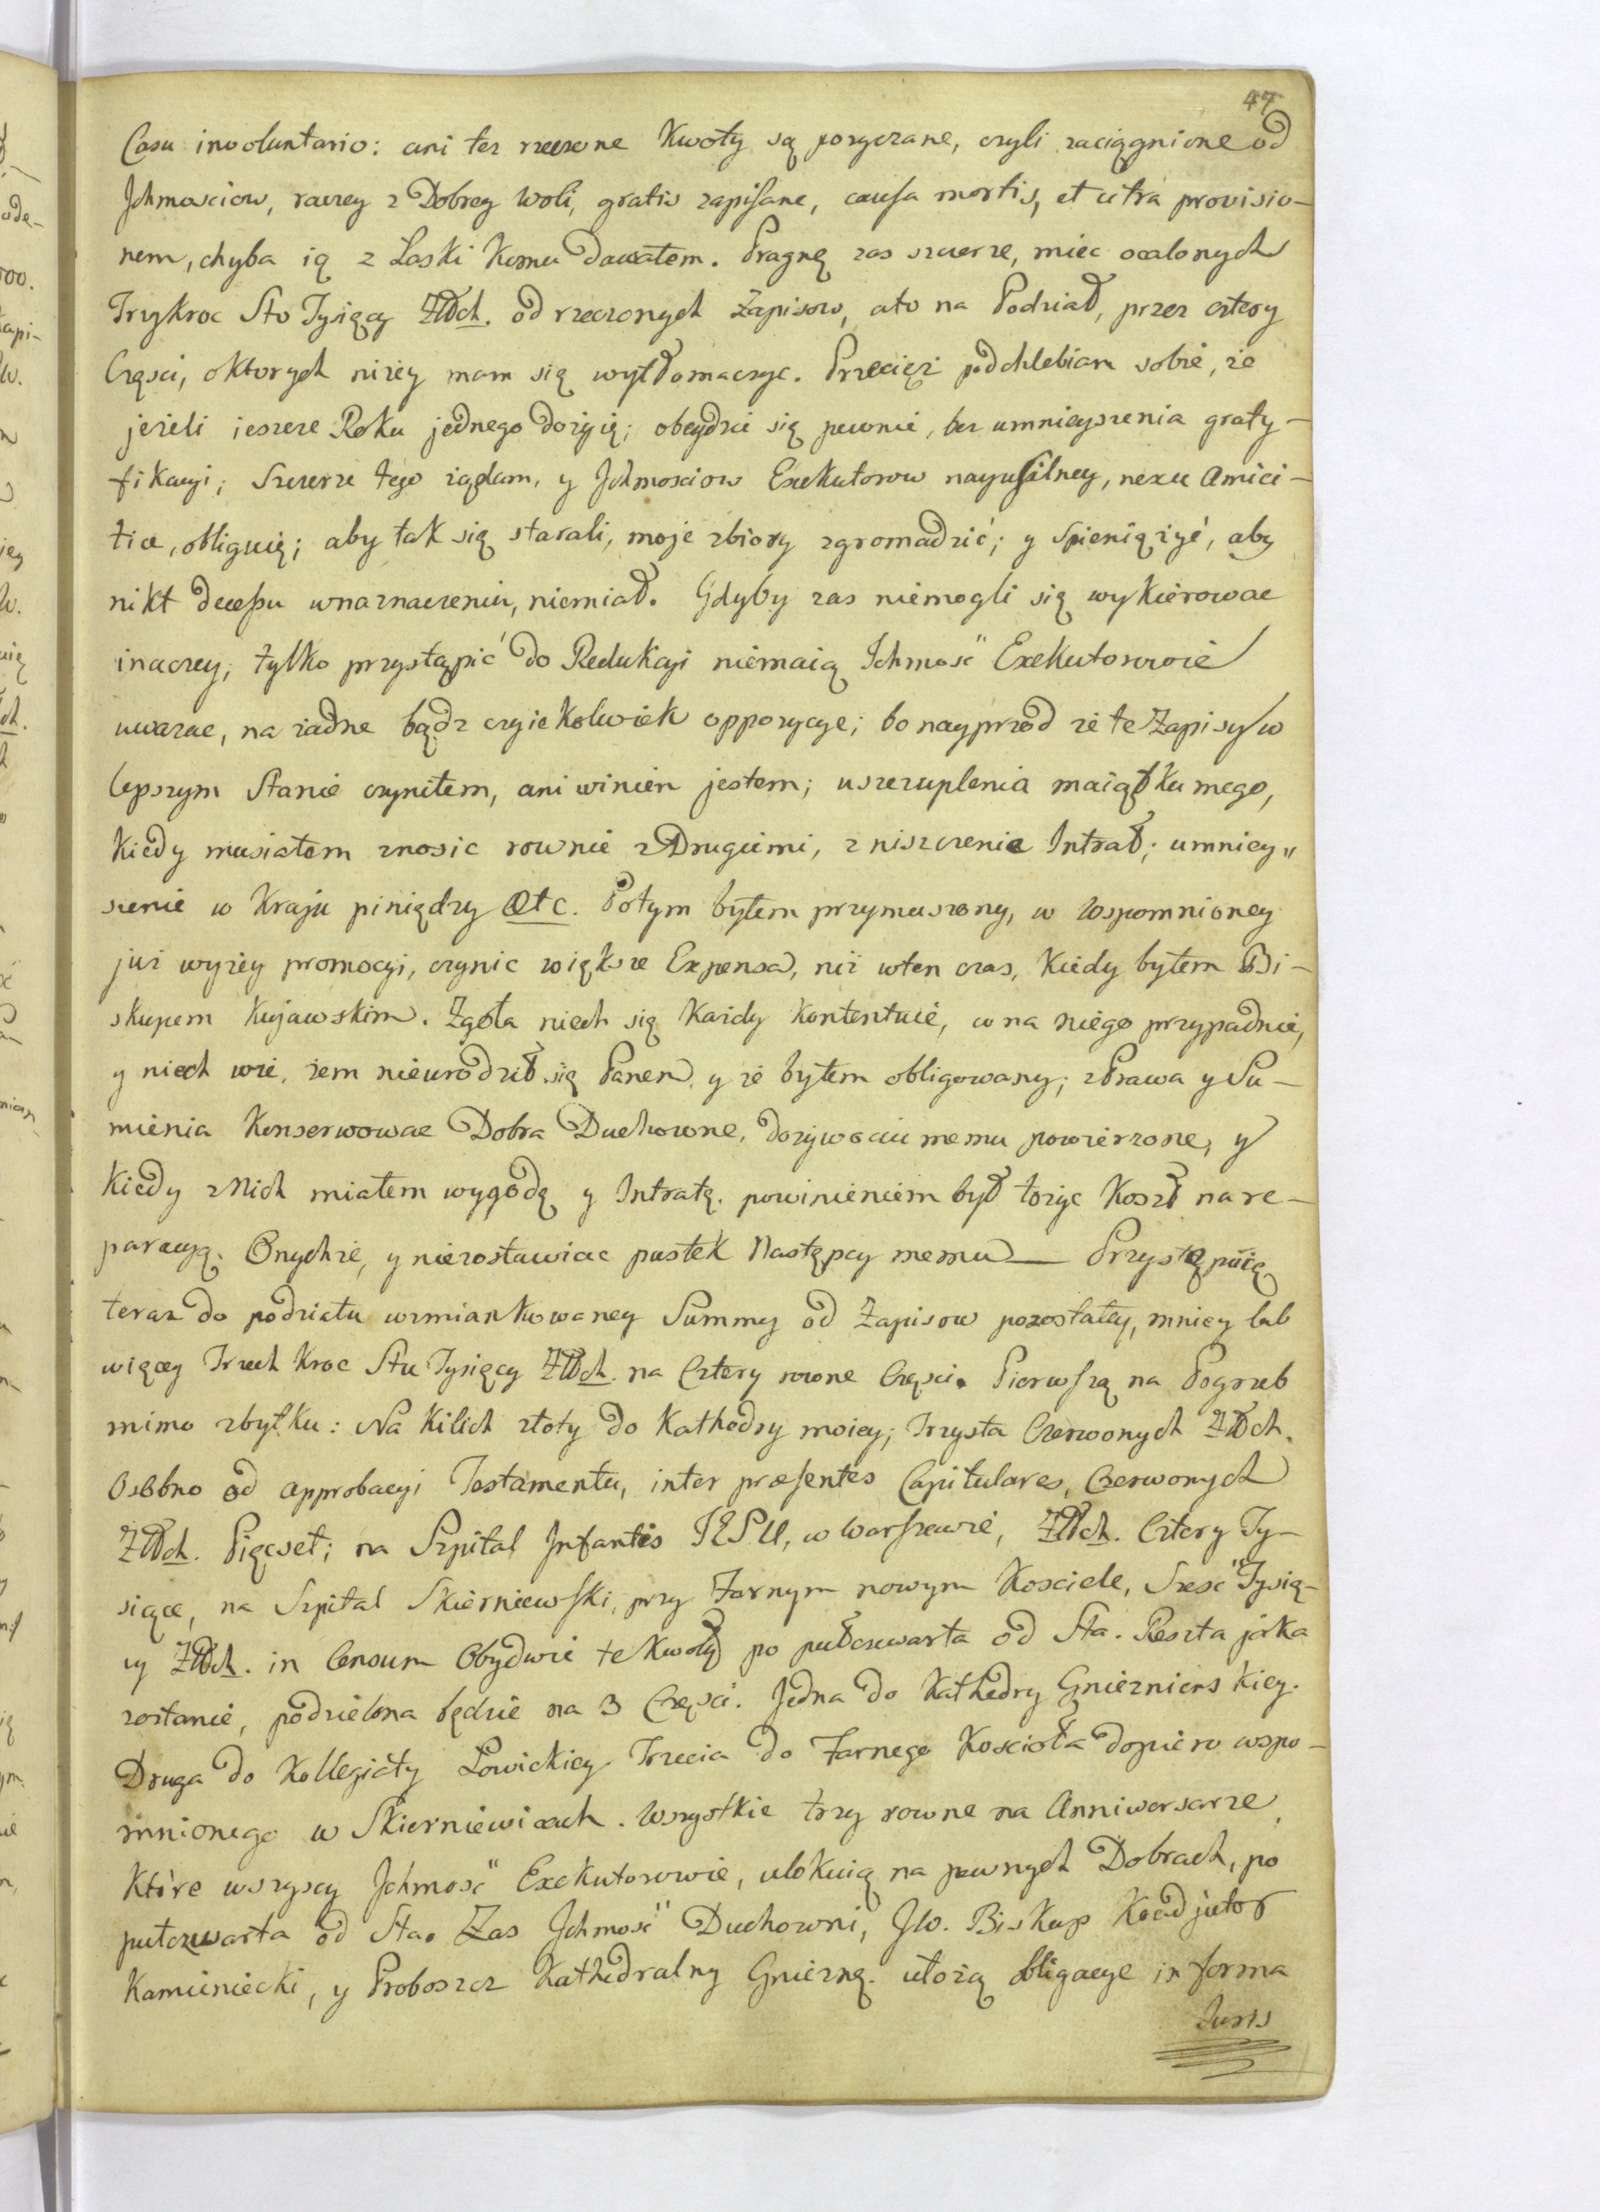 47
Casu involuntario: ani tez rzeczone Kwoty są pozyczane, czyli zaciągnione od
Jchmosciow, raczey z Dobrey woli, gratis zapisane, causa mortis, et citra provisio-
nem, chyba ią z Laski Komu Dawałem. Pragnę zas szczerze, miec ocalonych
Trzykroc Sto Tysięcy Złłch. od rzeczonych Zapisow, ato na Podział, przez cztery
Części, oktorych niżey mam się wytłomaczyc. Przecięż podchlebiam sobie, że
jeżeli ieszcze Roku jednego dożyię; obeydzie się pewnie, bez umnieyszenia graty-
fikacyi; Szczerze tego ządam, y Jchmosciow Exekutorow nayusilney, nexu Amici-
tiæ, obliguię; aby tak się starali, moje zbiory zgromadzić; y Spieniężyć, aby
nikt decessu wnaznaczeniu, niemiał. Gdyby zas niemogli się wykierowac
inaczey; tylko przystąpić do Redukcyi niemaią Ichmość Exekutorowie
uwazac, na żadne bądz czyiekolwiek oppozycye; bo nayprzod że te Zapisy w
lepszym Stanie czyniłem, ani winien jestem; uszczuplenia maiątku mego,
Kiedy musiałem znosic rownie z Drugiemi, zniszczenie Intrat; umniey„
szenie w Kraju piniędzy etc. Potym byłem przymuszony, w wspomnioney
już wyżey promocyi, czynic większe Expensa, niż wten czas, Kiedy byłem Bi-
skupem Kujawskim. Zgoła niech się Każdy kontentuie, co na niego przypadnie,
y niech wie, żem nieurodził się Panem y że byłem obligowany; z Prawa y Su-
mienia Konserwowac Dobra Duchowne, dozywociu memu powierzone, y
Kiedy z Nich miałem wygodę y Intratę. powinieniem był łożyc Koszt na re-
paracyą. Onychże, y niezostawiac pustek Następcy memu — Przystępuię
teraz do podziału wzmiankowaney Summy od Zapisow pozostałey, mniey lub
więcey Trzech Kroc Stu Tysięcy Złłch. na Cztery rowne Części. Pierwszą na Pogrzeb
mimo zbytku: Na Kilich złoty do Kathedry moiey; Trzysta Czerwonych Złłch.
Osobno od approbacyi Testamentu, inter præsentes Capitulares, Czerwonych
Złłch. Pięcset; na Szpital Infantis JESU, w Warszawie, Złłch. Cztery Ty-
siące, na Szpital Skierniewski, przy Farnym nowym Kosciele, Szesć Tysię-
cy Złłch. in Censum Obydwie te Kwoty po pułczwarta od Sta. Reszta jaka
zostanie, podzielona będzie na 3 Częsci. Jedna do Kathedry Gniezninskiey.
Druga do Kollegiaty Łowickiey Trzecia do Farnego Koscioła dopiero wspo-
mnionego w Skierniewicach. Wszystkie trzy rowne na Anniwersarze
Które wszyscy Jchmość Exekutorowie, ulokuią na pewnych Dobrach, po
pułczwarta od Sta. Zas Jchmość Duchowni, JW. Biskup Koadjutor
Kamieniecki, y Proboszcz Kathedralny Gniezną. ułożą obligacye in forma
Juris